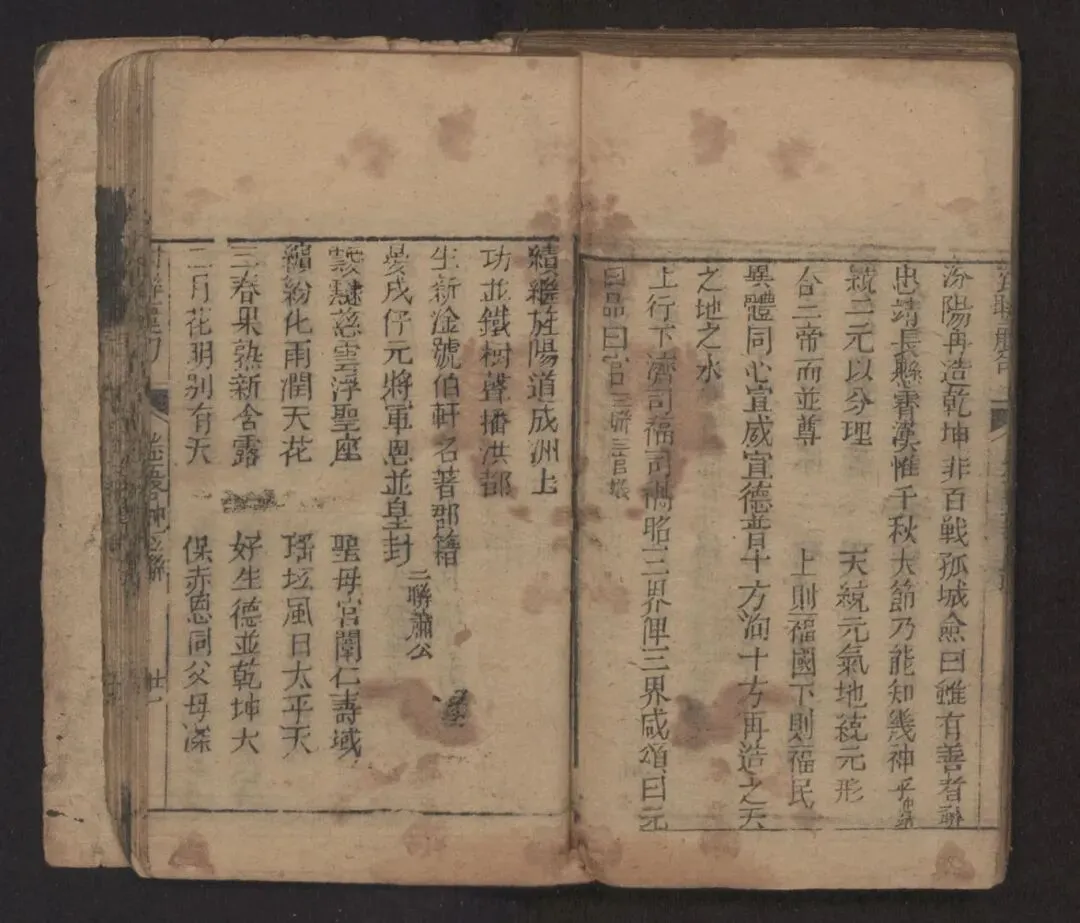 汾陽再造乾坤非百戰孤城僉曰雖有善者聯
忠靖長懸霽漢惟千秋大節乃能知幾神乎
統三元以分理 天統元氣地統元形
合三帝而並尊 上則福國下則福民
異體同心宣威宣德普十方洵十方再造之天
之地之水
上行下濟司福司禍昭三界俾三界咸頌曰元
曰品曰官 三聯三官殿
績繼旌陽道成洲上
功並鐵樹聲播洪都
生新淦號伯軒名著郡籍
晏戌仔元將軍恩並皇封 二聯蕭公
靉靆慈雲浮聖座 聖母宮闈仁壽域
繽紛化雨潤天花 瑤坛風日太平天
三春果熟新含露 好生德並乾坤大
二月花明别有天 保赤恩同父母深
廿一